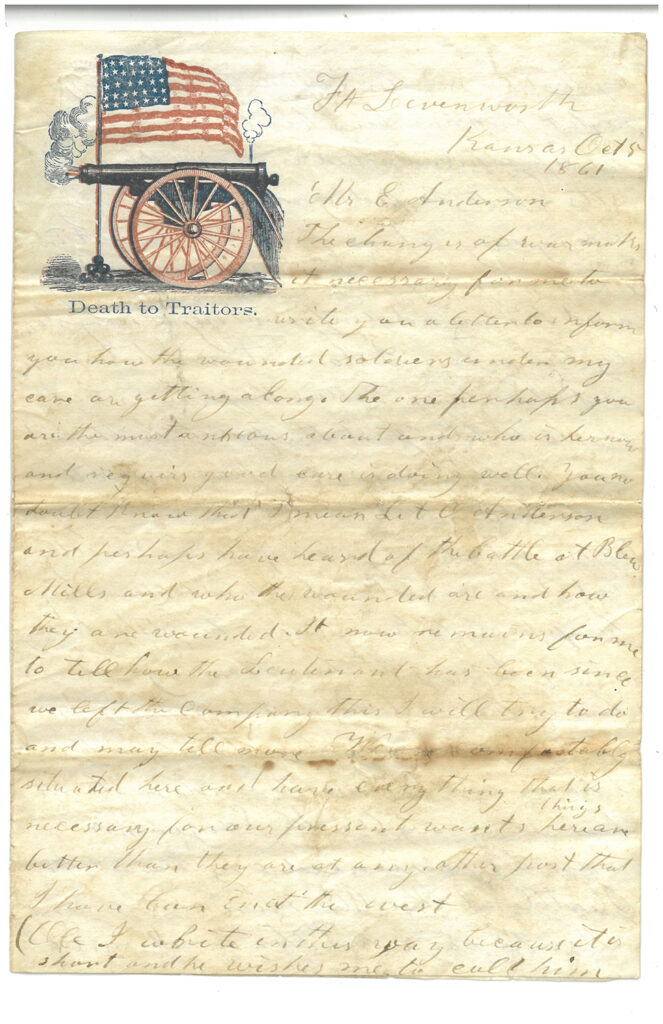 Ft Levenworth
Kansas Oct 5
1861
Mr E Anderson
Death to Traitors.
The changes of war makes
it necessary for me to
write you a letter to inform
you how the wounded soldiers under my
care are getting along. The one perhaps you
are the most anxious about and who is here now
and requirs good care is doing well. You no
doubt know that I mean Lt O Anderson
and perhaps have heard of the battle at Blew
Mills and who the wounded are and how
they are wounded. It now remains for me
to tell how the Lieutenant has been since
we left the Company this I will try to do
and may tell more We are comfortably
situated here and have everything that is
necessary for our pressent wants things here are
better than they are at any other post that
I have been in the west
(Ole I white in this way because it is
short and he wishes me to call him